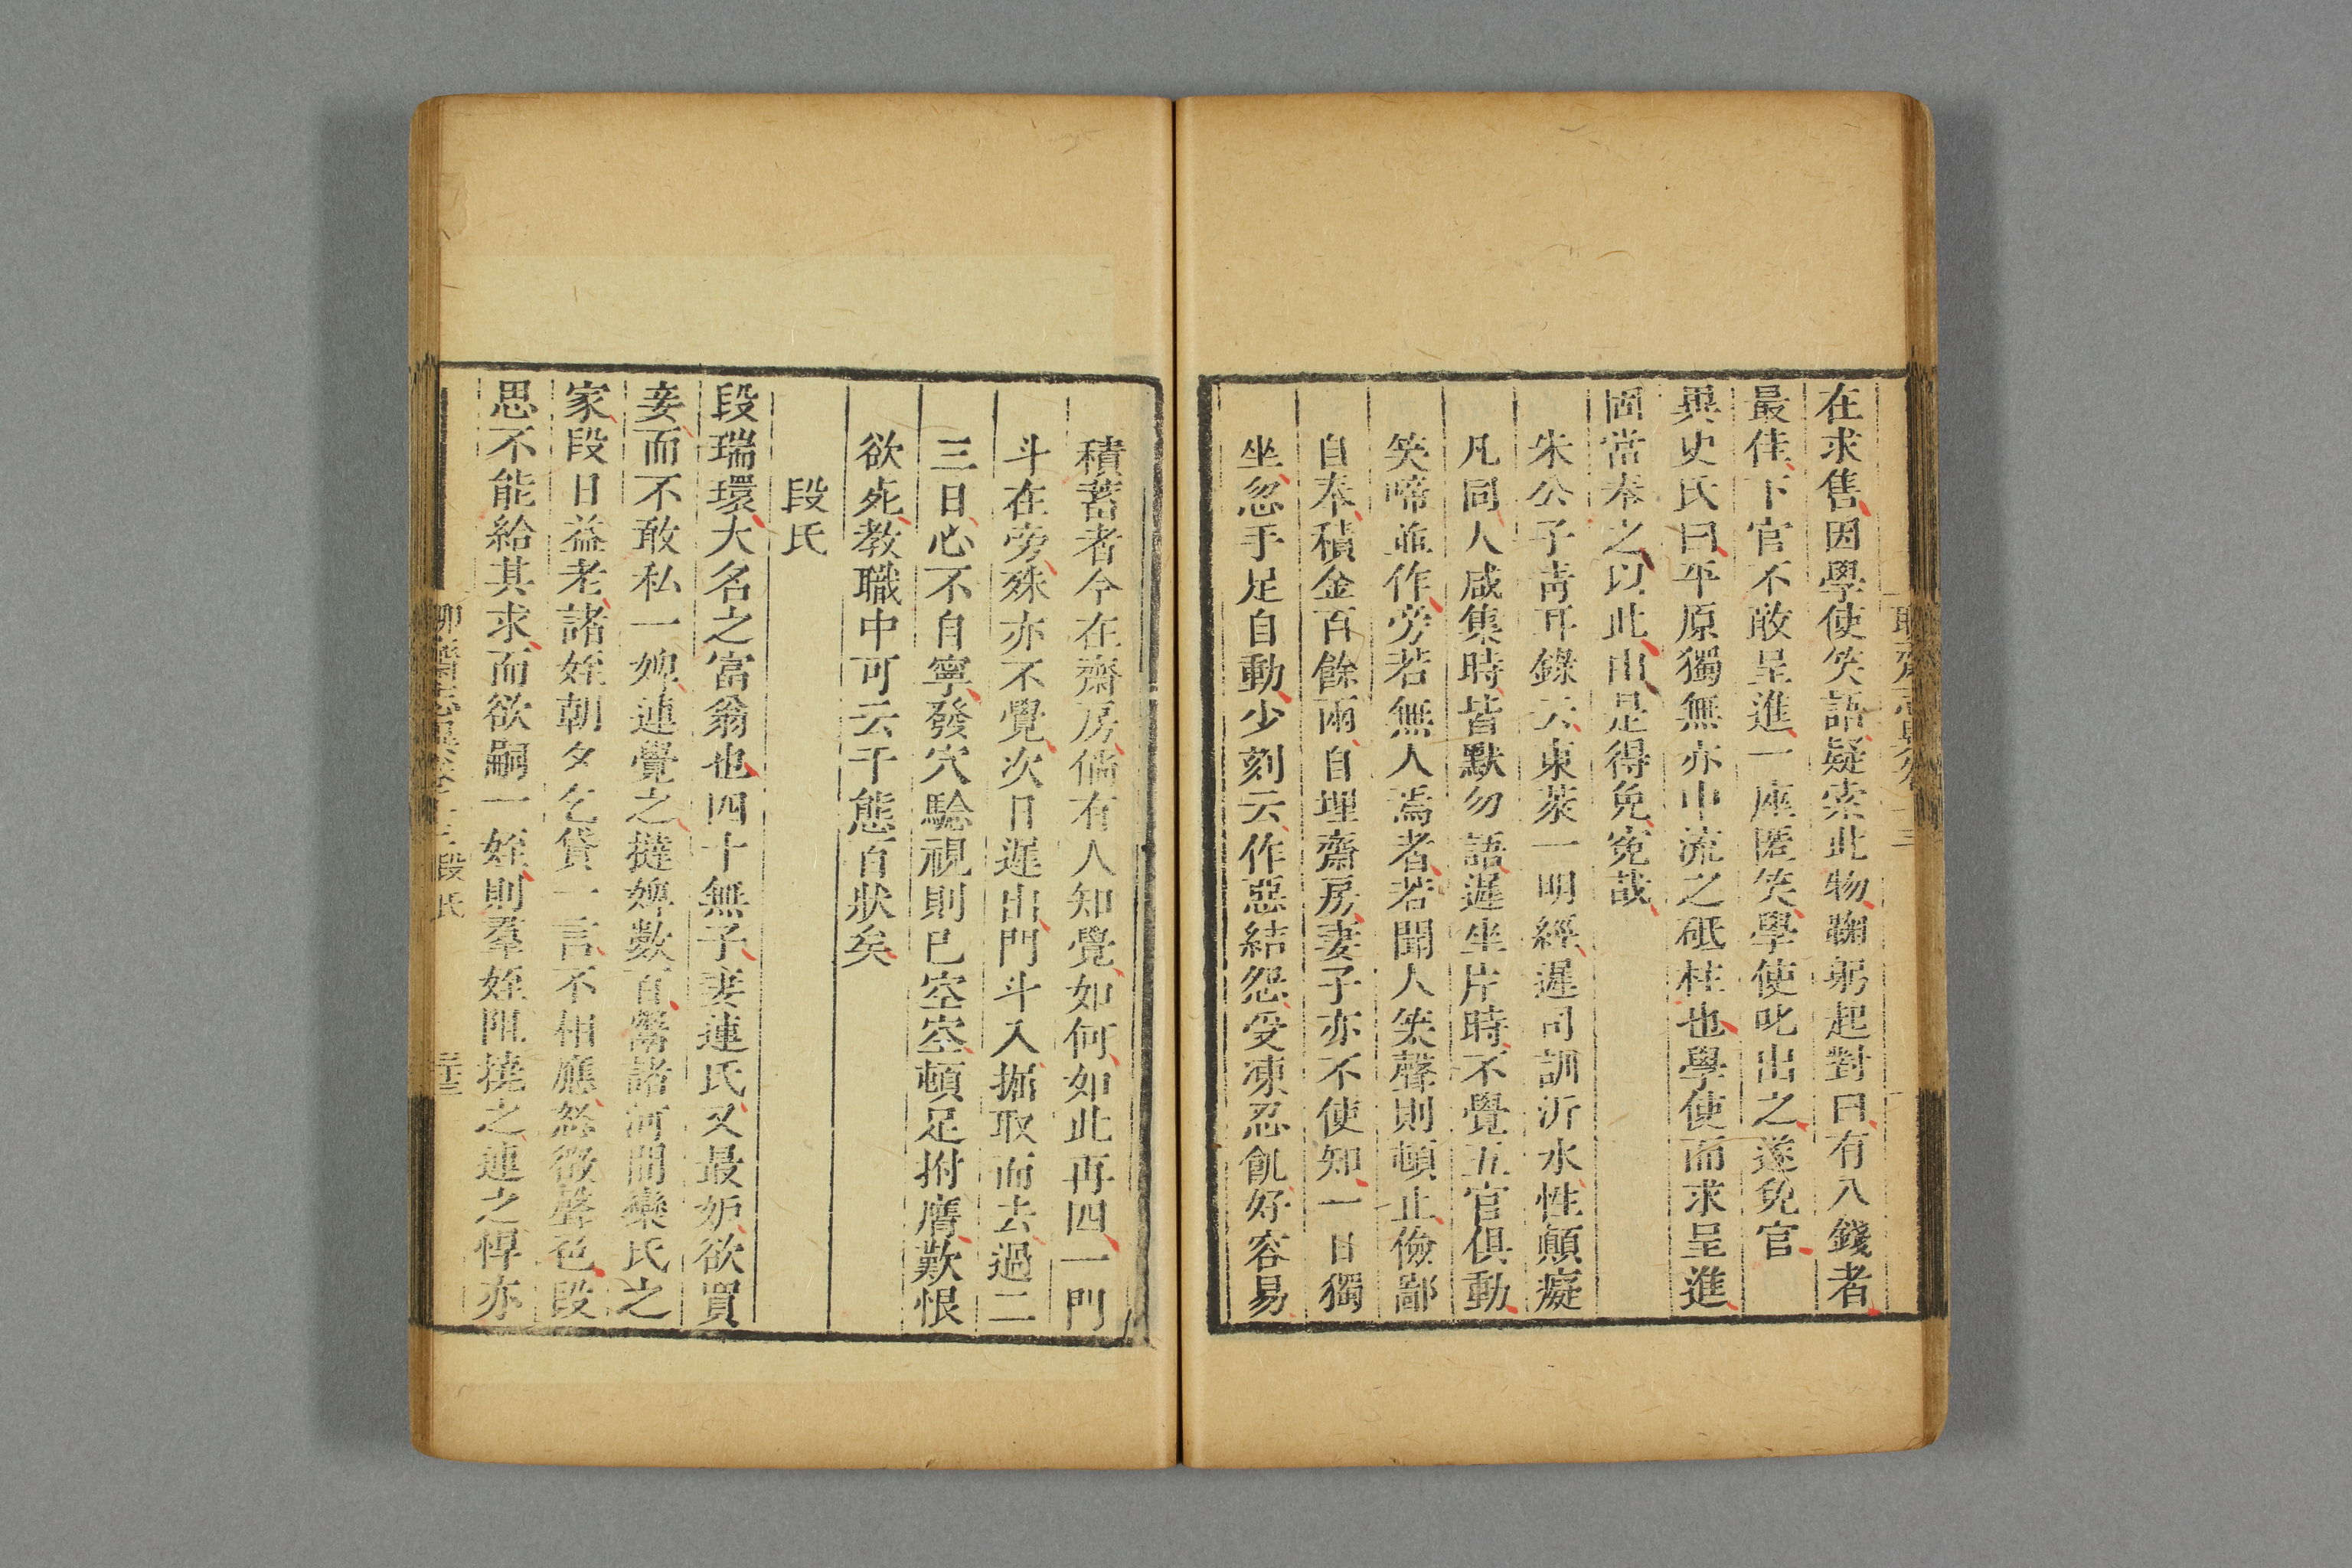 在求售因學使笑語疑索此物鞠躬起對曰有八錢者
最佳下官不敢呈進一座匿笑學使叱出之遂免官
異史氏曰平原獨無亦中流之砥柱也學使而求呈進
固當奉之以此由是得免寃哉
朱公子靑耳錄云東萊一明經遲司訓沂水性顛癡
凡同人咸集時皆默勿語遲坐片時不覺五官俱動
笑啼並作旁若無人焉者若聞人笑聲則頓止儉鄙
自奉積金百餘兩自埋齋房妻子亦不使知一日獨
坐忽手足自動少刻云作惡結怨受凍忍飢好容易
積蓄者今在齋房倘有人知覺如何如此再四一門
斗在旁殊亦不覺次日遲出門斗入掘取而去過二
三日心不自寧發穴驗視則已空空頓足拊膺歎恨
欲死教職中可云千態百狀矣
段氏
段瑞環大名之富翁也四十無子妻連氏又最妒欲買
妾而不敢私一婢連覺之撻婢數百鬻諸河間欒氏之
家段日益老諸姪朝夕乞貸一言不相應怒徵聲色段
思不能給其求而欲嗣一姪則羣姪阻撓之連之悍亦
段氏